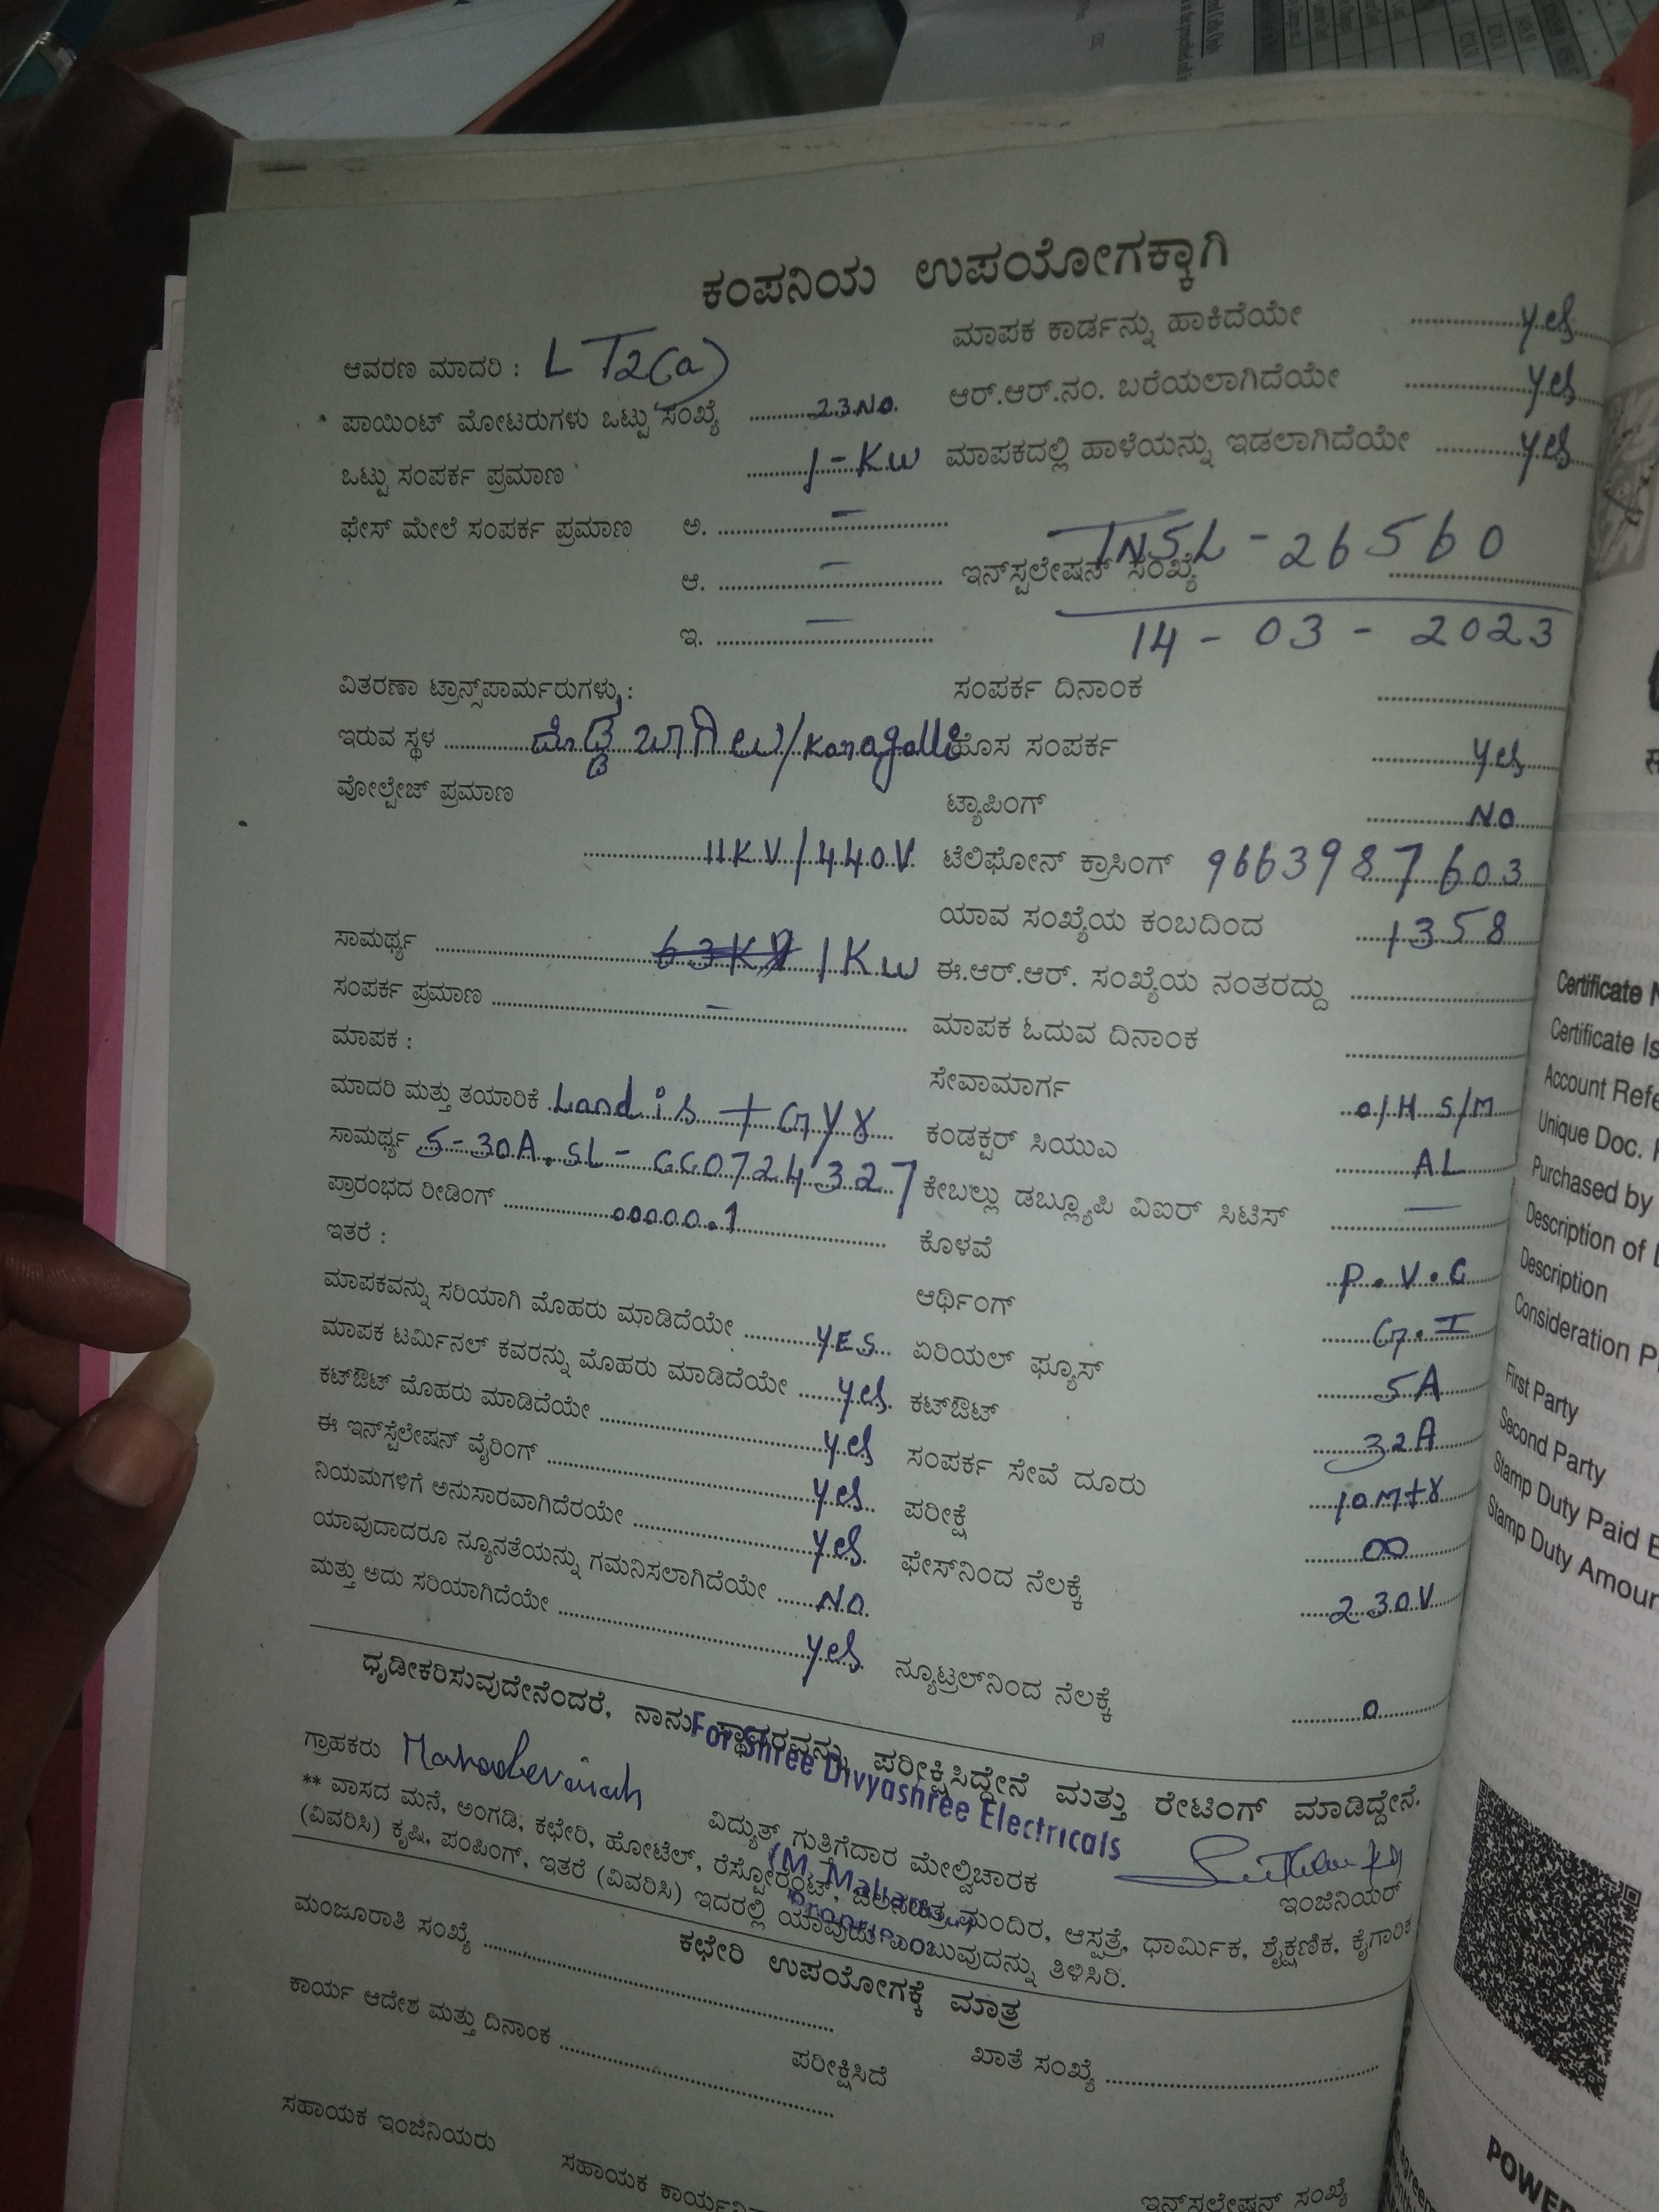 ಕಂಪನಿಯ ಉಪಯೋಗಕ್ಕಾಗಿ
ಆವರಣ ಮಾದರಿ : LT2(a)
ಪಾಯಿಂಟ್ ಮೋಟರುಗಳು ಒಟ್ಟು ಸಂಖ್ಯೆ 23No.
ಒಟ್ಟು ಸಂಪರ್ಕ ಪ್ರಮಾಣ 1-KW
ಫೇಸ್ ಮೇಲೆ ಸಂಪರ್ಕ ಪ್ರಮಾಣ ಅ. –
ಆ. –
ಇ. –
ವಿತರಣಾ ಟ್ರಾನ್ಸ್‌ಪಾರ್ಮರುಗಳು :
ಇರುವ ಸ್ಥಳ ದೊಡ್ಡ ಬಾಗಿಲು/Kanagalli
ವೋಲ್ಟೇಜ್ ಪ್ರಮಾಣ
11KV/440V.
ಸಾಮರ್ಥ್ಯ 1KW
ಸಂಪರ್ಕ ಪ್ರಮಾಣ –
ಮಾಪಕ :
ಮಾದರಿ ಮತ್ತು ತಯಾರಿಕೆ Landis + Gyr
ಸಾಮರ್ಥ್ಯ 5-30A. SL- GG0724327
ಪ್ರಾರಂಭದ ರೀಡಿಂಗ್ 00000.1
ಇತರೆ :
ಮಾಪಕವನ್ನು ಸರಿಯಾಗಿ ಮೊಹರು ಮಾಡಿದೆಯೇ YES
ಮಾಪಕ ಟರ್ಮಿನಲ್ ಕವರನ್ನು ಮೊಹರು ಮಾಡಿದೆಯೇ yes.
ಕಟ್‌ಔಟ್ ಮೊಹರು ಮಾಡಿದೆಯೇ yes
ಈ ಇನ್‌ಸ್ಟಲೇಷನ್ ವೈರಿಂಗ್ yes
ನಿಯಮಗಳಿಗೆ ಅನುಸಾರವಾಗಿದೆರಯೇ yes.
ಯಾವುದಾದರೂ ನ್ಯೂನತೆಯನ್ನು ಗಮನಿಸಲಾಗಿದೆಯೇ No.
ಮತ್ತು ಅದು ಸರಿಯಾಗಿದೆಯೇ yes.
ಮಾಪಕ ಕಾರ್ಡನ್ನು ಹಾಕಿದೆಯೇ yes
ಆರ್.ಆರ್.ನಂ. ಬರೆಯಲಾಗಿದೆಯೇ yes
ಮಾಪಕದಲ್ಲಿ ಹಾಳೆಯನ್ನು ಇಡಲಾಗಿದೆಯೇ yes
ಇನ್‌ಸ್ಟಲೇಷನ್ ಸಂಖ್ಯೆ TNSL-26560
14-03-2023
ಸಂಪರ್ಕ ದಿನಾಂಕ
ಹೊಸ ಸಂಪರ್ಕ yes
ಟ್ಯಾಪಿಂಗ್ No
ಟೆಲಿಫೋನ್ ಕ್ರಾಸಿಂಗ್ 9663987603
ಯಾವ ಸಂಖ್ಯೆಯ ಕಂಬದಿಂದ 1358
ಈ.ಆರ್.ಆರ್. ಸಂಖ್ಯೆಯ ನಂತರದ್ದು
ಮಾಪಕ ಓದುವ ದಿನಾಂಕ
ಸೇವಾಮಾರ್ಗ O/H S/M
ಕಂಡಕ್ಟರ್ ಸಿಯುಎ AL
ಕೇಬಲ್ಲು ಡಬ್ಲ್ಯೂಪಿ ವಿಐರ್ ಸಿಟಿಸ್ –
ಕೊಳವೆ P.V.C
ಆರ್ಥಿಂಗ್ G.I
ಏರಿಯಲ್ ಫ್ಯೂಸ್ 5A
ಕಟ್‌ಔಟ್ 32A
ಸಂಪರ್ಕ ಸೇವೆ ದೂರು 10Mtr
ಪರೀಕ್ಷೆ ∞
ಫೇಸ್‌ನಿಂದ ನೆಲಕ್ಕೆ 230V
ನ್ಯೂಟ್ರಲ್‌ನಿಂದ ನೆಲಕ್ಕೆ 0
ಧೃಡೀಕರಿಸುವುದೇನೆಂದರೆ, ನಾನು ಸ್ಥಾವರವನ್ನು ಪರೀಕ್ಷಿಸಿದ್ದೇನೆ ಮತ್ತು ರೇಟಿಂಗ್ ಮಾಡಿದ್ದೇನೆ.
For Shree Divyashree Electricals
ಗ್ರಾಹಕರು Mahadevaiah
ವಿದ್ಯುತ್ ಗುತ್ತಿಗೆದಾರ ಮೇಲ್ವಿಚಾರಕ
ಇಂಜಿನಿಯರ್
** ವಾಸದ ಮನೆ, ಅಂಗಡಿ, ಕಛೇರಿ, ಹೋಟೆಲ್, ರೆಸ್ಟೋರೆಂಟ್, ಚಲನಚಿತ್ರ ಮಂದಿರ, ಆಸ್ಪತ್ರೆ, ಧಾರ್ಮಿಕ, ಶೈಕ್ಷಣಿಕ, ಕೈಗಾರಿಕ
(ವಿವರಿಸಿ) ಕೃಷಿ, ಪಂಪಿಂಗ್, ಇತರೆ (ವಿವರಿಸಿ) ಇದರಲ್ಲಿ ಯಾವುದು ಎಂಬುವುದನ್ನು ತಿಳಿಸಿರಿ.
ಕಛೇರಿ ಉಪಯೋಗಕ್ಕೆ ಮಾತ್ರ
ಮಂಜೂರಾತಿ ಸಂಖ್ಯೆ
ಖಾತೆ ಸಂಖ್ಯೆ
ಕಾರ್ಯ ಆದೇಶ ಮತ್ತು ದಿನಾಂಕ
ಪರೀಕ್ಷಿಸಿದೆ
ಸಹಾಯಕ ಇಂಜಿನಿಯರು
ಸಹಾಯಕ
ಇನ್‌ಸ್ಟಲೇಷನ್ ಸಂಖ್ಯೆ
Certificate
Certificate Is
Account Refe
Unique Doc.
Purchased by
Description of
Description
Consideration P
First Party
Second Party
Stamp Duty Paid
Stamp Duty Amour
POWE